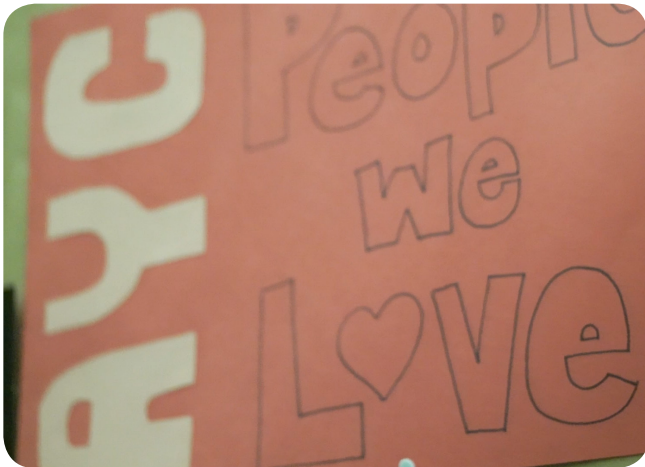 AYC
People
we
Love